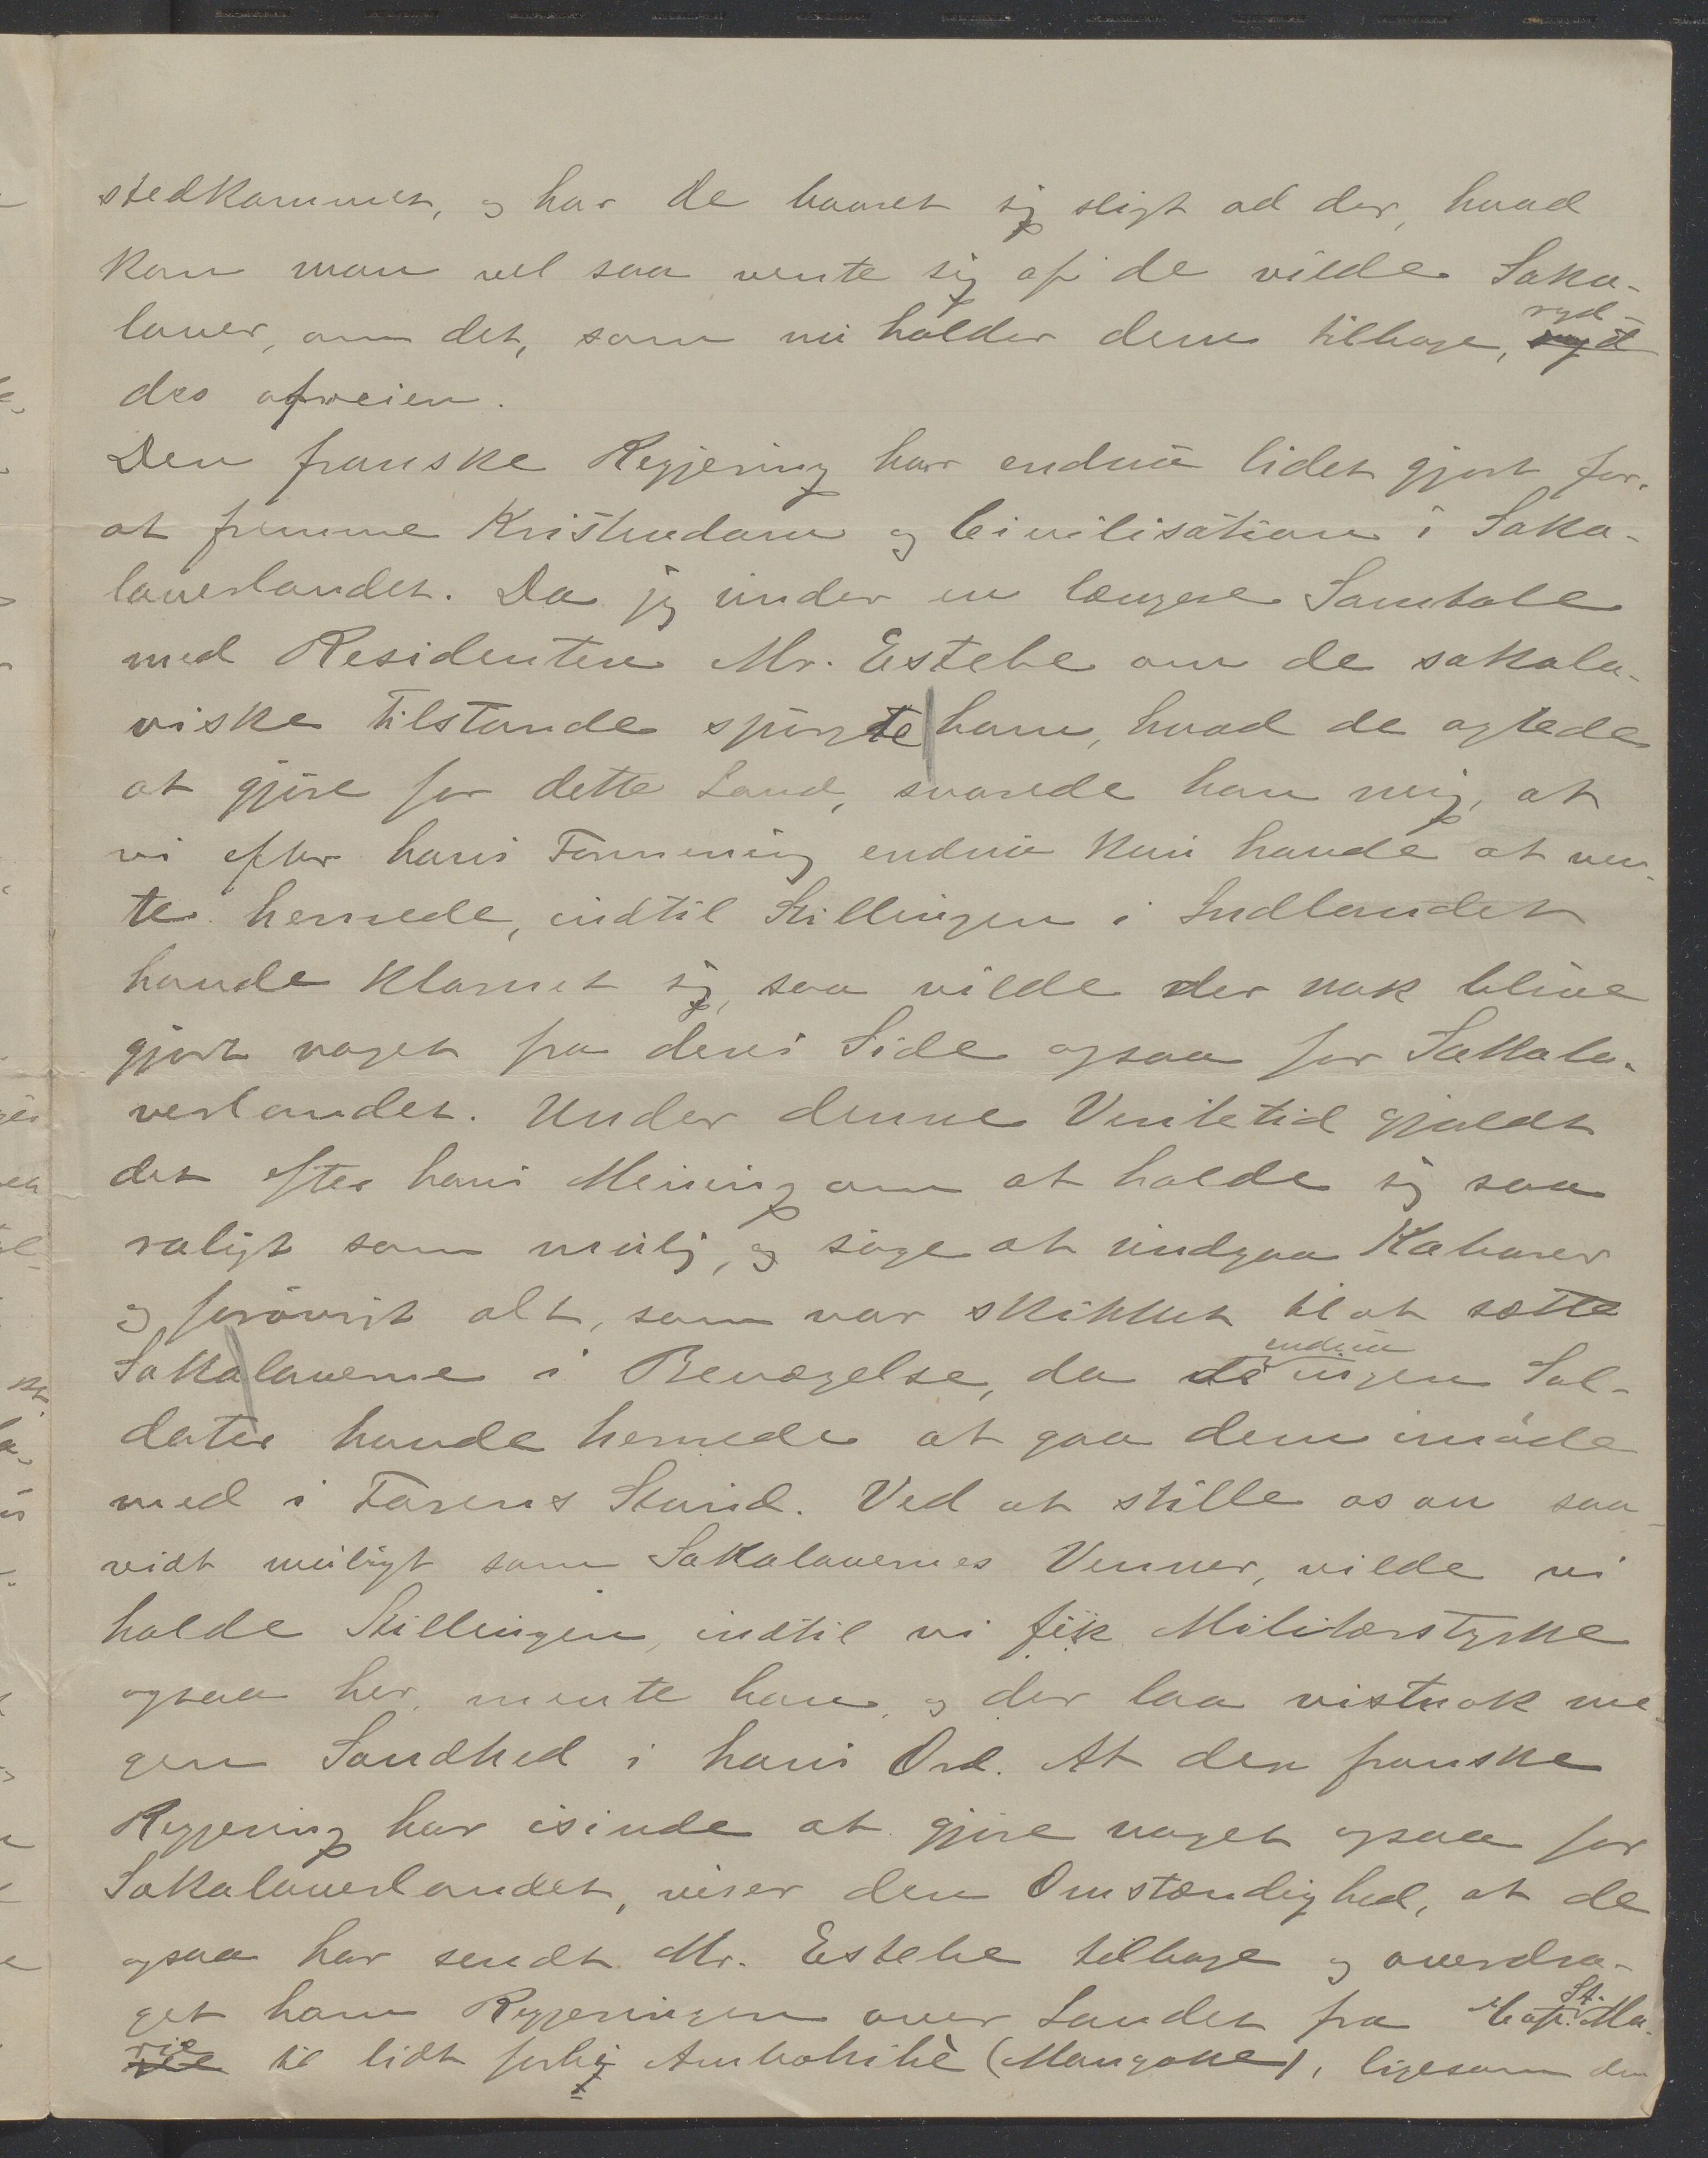 stedkommet, og har de baaret sig sligt ad der, hvad
kan man vel saa vente sig af de vilde Saka-
laver, om det, som nu holder dem tilbage, ryd-
des afveien.
Den franske Regjering har endnu lidet gjort for
at fremme Kristendom og Civilisation i Saka-
laverlandet. Da jeg under en længere Samtale
med Residenten Mr. Estebe om de sakala-
viske Tilstande spurgte ham, hvad de agtede
at gjøre for dette Land, svarede han mig, at
vi efter hans Formening endnu kun havde at ven-
te hernede, indtil Stillingen i Indlandet
havde klarnet sig, saa vilde der nok blive
gjort noget fra deres Side ogsaa for Sakala-
verlandet. Under denne Ventetid gjaldt
det efter hans Mening om at holde sig saa
roligt som mulig, og søge at undgaa Kabarer
og forøvrigt alt, som var skikket til at sætte
Sakalaverne i Bevægelse, da de endnu ingen Sol-
dater havde hernede at gaa dem imøde
med i Farens Stund. Ved at stille os an saa-
vidt muligt som Sakalavernes Venner, vilde vi
holde Stillingen, indtil vi fik Militærstyrke
ogsaa her, mente han, og der laa vistnok me-
gen Sandhed i hans Ord. At den franske
Regjering har isinde at gjøre noget ogsaa for
Sakalaverlandet, viser den Omstændighed, at de
ogsaa har sendt Mr. Estebe tilbage og overdra-
get ham Regjeringen over Landet fra Cap. St. Ma-
rie til lidt forbi Ambohibè (Mangoke), ligesom den